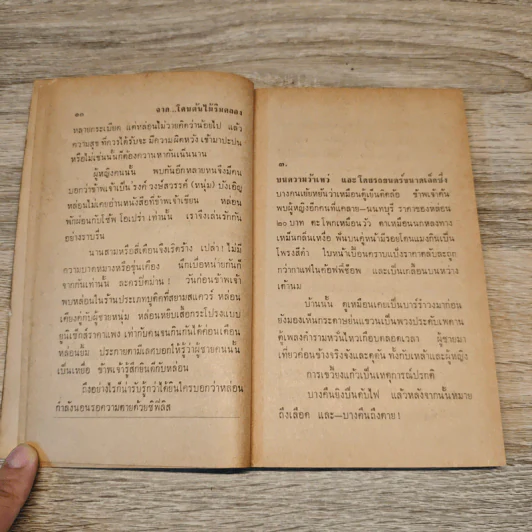 ๑๐ จาก...โคนต้นไม้ริมคลอง
หลายกระเบียด แต่หล่อนไม่วายคิดว่าน้อยไป แล้ว
ความสุข ที่ควรได้รับจะ มีความผิดหวัง เข้ามาปะปน
หรือไม่เช่นนั้นก็ต้องควานหากันเนิ่นนาน
ผู้หญิงคนนั้น พบกันอีกหลายหนจึงมีคน
บอกว่าข้าพเจ้าเป็น รงค์ วงษ์สวรรค์ (หนุ่ม) บังเอิญ
หล่อนไม่เคยอ่านหนังสือที่ข้าพเจ้าเขียน หล่อน
พักผ่อนกับโชพิ้น โอเปร่า เท่านั้น เราจึงเล่นรักกัน
อย่างราบรื่น
นานสามหรือสี่เดือนจึงเริดร้าง เปล่า! ไม่มี
ความบาดหมางหรือขุ่นเคือง นึกเบื่อหน่ายกันก็
จากกันเท่านั้น ละครบิดม่าน! วันก่อนข้าพเจ้า
พบหล่อนในร้านประเภทบูติคที่สยามสแควร์ หล่อน
เคียงคู่กับผู้ชายหนุ่ม หล่อนหยิบเสื้อกระโปรงแบบ
ยูนิเซ็กส์ราคาแพง เท่ากับคนจนกินกันได้ค่อนเดือน
หล่อนยิ้ม ประกายตามีเลศบอกให้รู้ว่าผู้ชายคนนั้น
เป็นเหยื่อ ข้าพเจ้ารู้สึกยินดีกับหล่อน
ถึงอย่างไรก็น่ารับรู้กว่าได้ยินใครบอกว่าหล่อน
กำลังนอนรอความตายด้วยซิฟิลิส
๓.
บทความว้าเหว่ และ โดสรอยนตร์ขนาดเล็กซิ่ง
บางคนเย้ยหยันว่าเหมือนตู้เย็นติดล้อ ข้าพเจ้าค้น
พบผู้หญิงอีกคนที่แคลาย—นนทบุรี ราคาของหล่อน
๒๐ บาท ตะโพกเหมือนวัว ตาเหมือนนกหลงทาง
เหม็นกลิ่นเหงื่อ พื้นบนคู้หน้ามีรอยโดนแมงกินเป็น
โพรงสีดำ ใบหน้าเปื้อนคราบแป้งราคาตลับละถูก
กว่ากาแฟในค๊อฟฟี่ช๊อพ และเป็นเกลื้อนบนหว่าง
เต้านม
บ้านนั้น ดูเหมือนเคยเป็นบาร์รำวงมาก่อน
ยังมองเห็นกระดาษย่นแขวนเป็นพวงประดับเพดาน
ตู้เพลงทำรามหวั่นไหวเกือบตลอดเวลา ผู้ชายมา
เที่ยวค่อนข้างจริงจังและดุดัน ทั้งกับเหล้าและผู้หญิง
การเขวี้ยงแก้วเป็นเหตุการณ์ปรกติ
บางคืนยิงปืนดับไฟ แล้วหลังจากนั้นหมาย
ถึงเลือด และ—บางคืนถึงตาย!